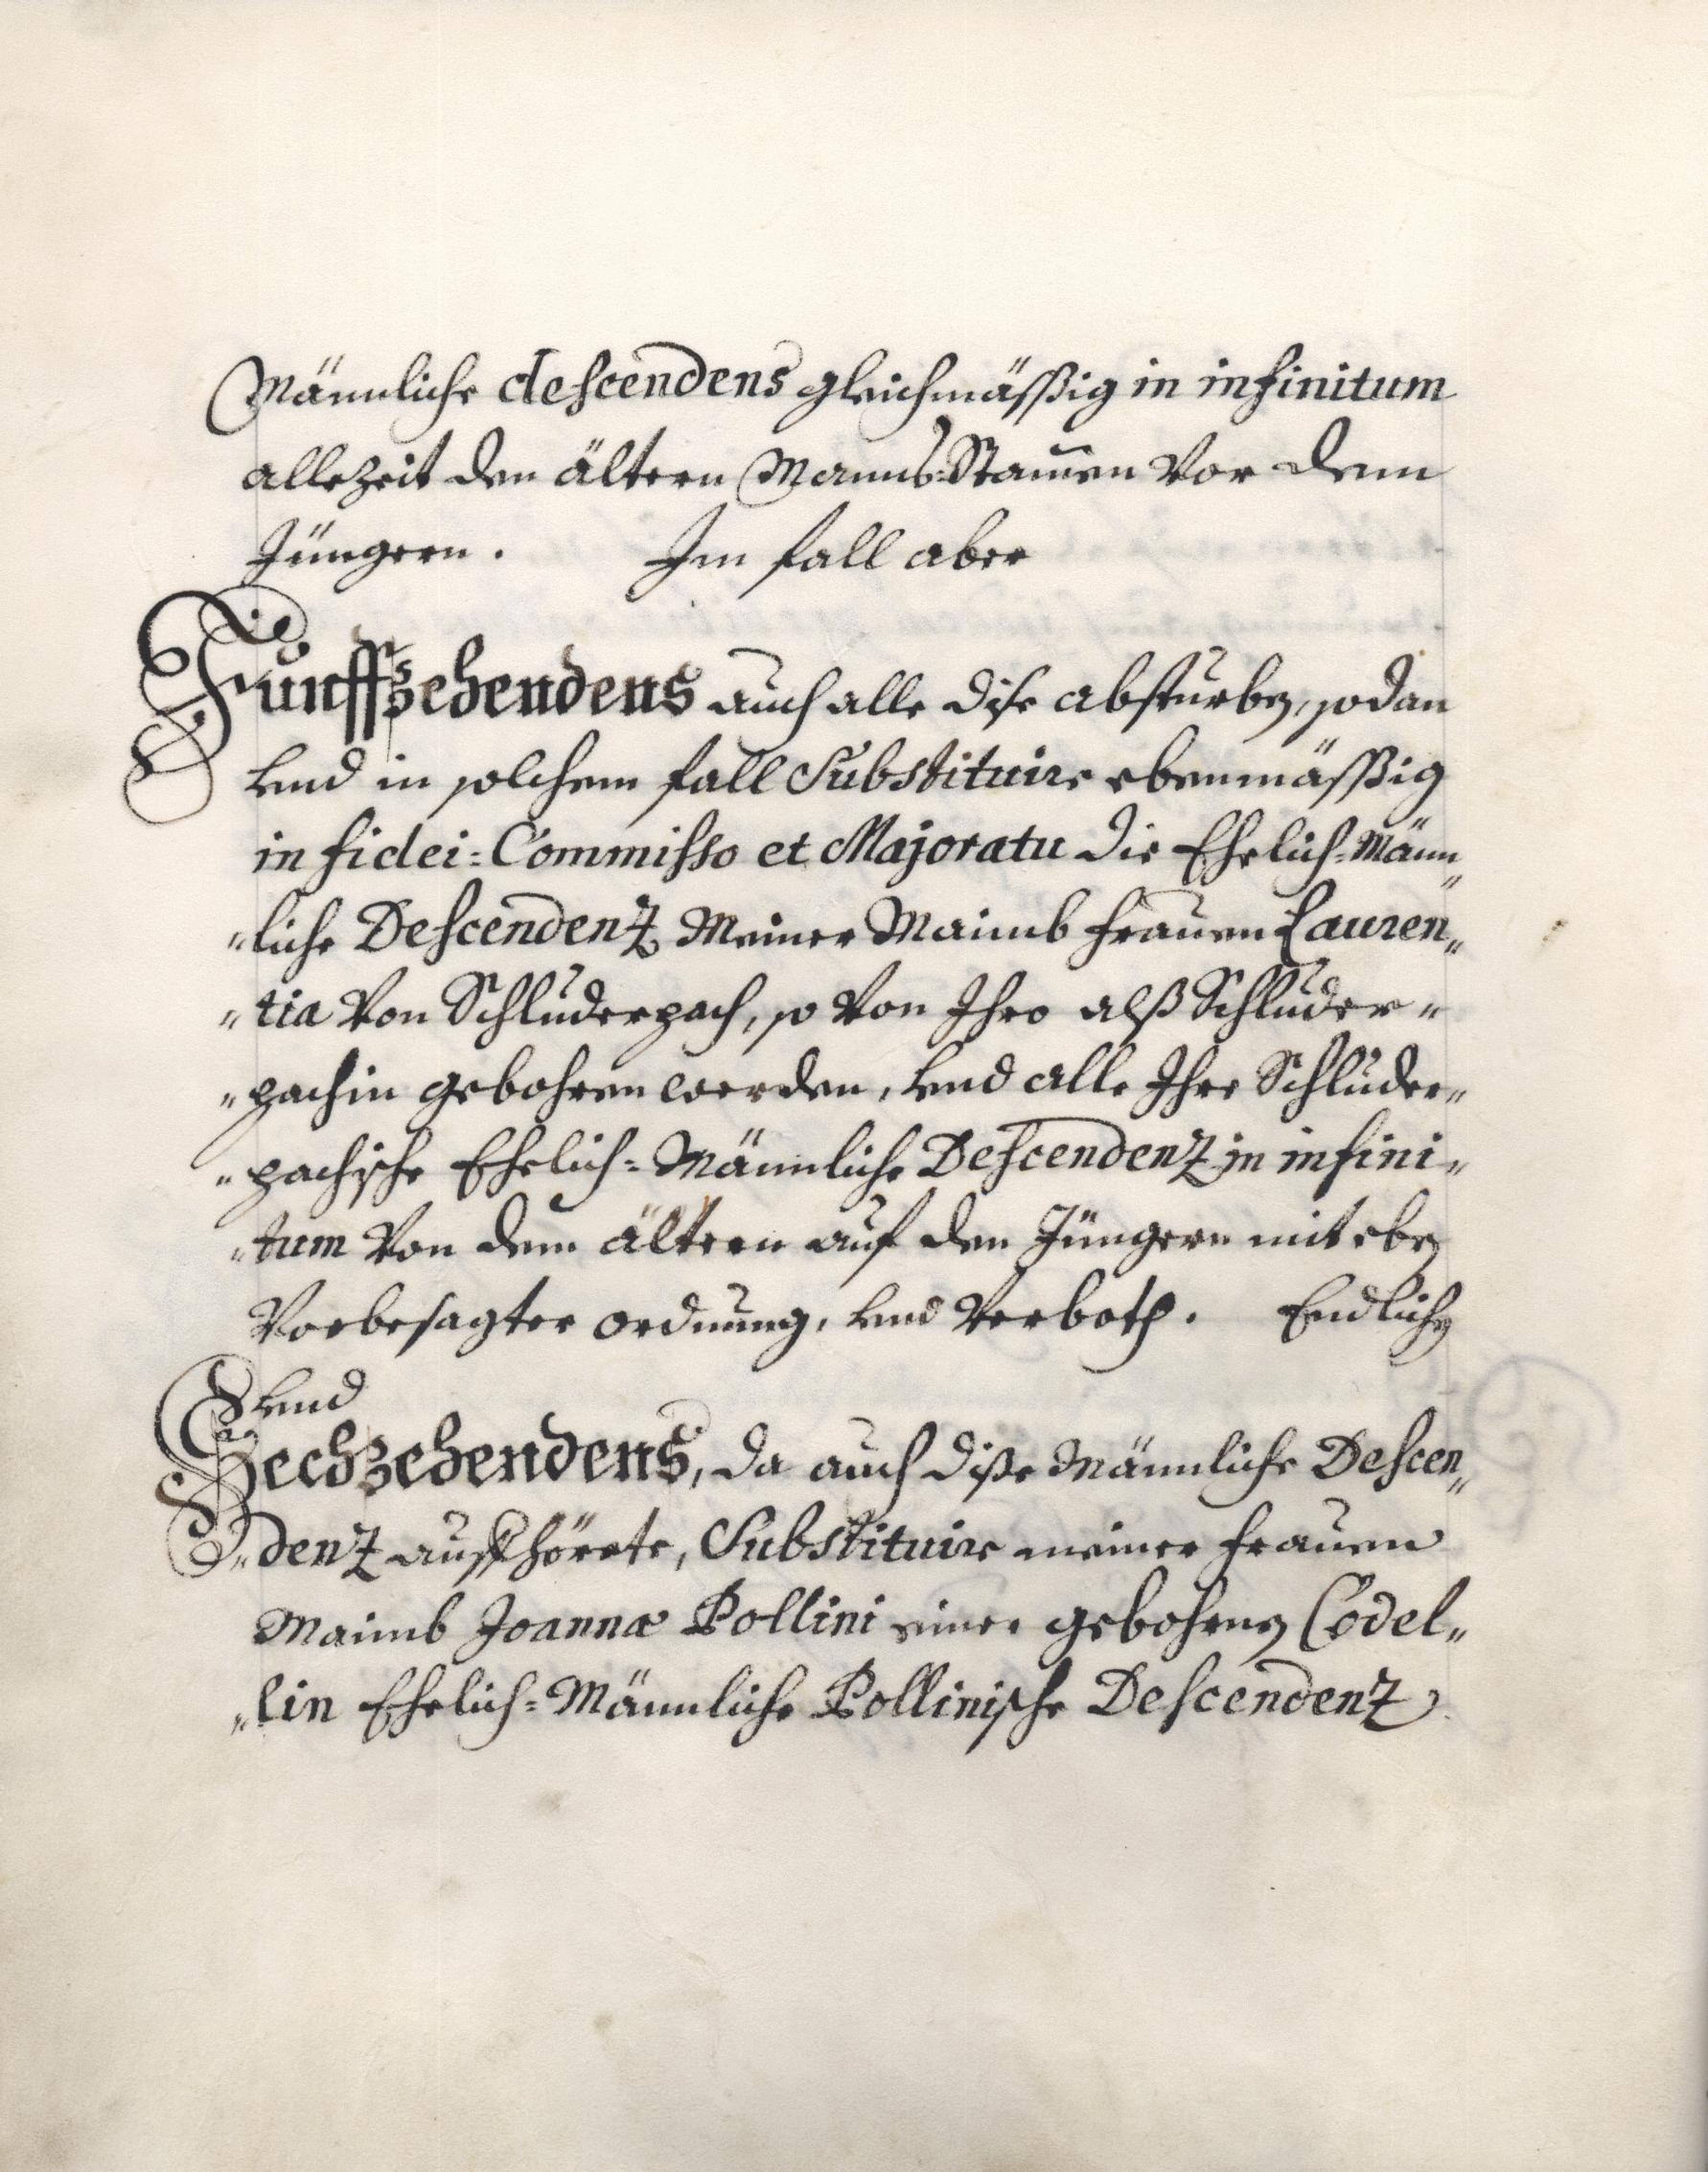 Männliche descendens gleichmässig in infinitum
allezeit den ältern Manns-Stamen Vor dem
Jüngern. Im fall aber
Fünffzehendens auch alle dise absturben, sodan
und in solchem fall Substituire ebenmässig
in fidei=Commisso et Majoratu die Ehelich=Männ„
„liche Descendentz Meiner Maimb Frauen Lauren„
„tia Von Schluderpach, so Von Ihro alß Schluder„
„pachin gebohren werden, und alle Ihre Schluder„
„pachische Ehelich=Männliche Descendentz in infini„
„tum Von dem ältern auf den Jüngern mit eben
Vorbesagter ordnung, und Verboth. Endlichen
und
Sechzehendens, da auch diße Männliche Descen„
„dentz auffhörete, Substituire meiner Frauen
Maimb Joannæ Pollini einer gebohrnen Codel„
„lin Ehelich=Männliche Pollinische Descendentz